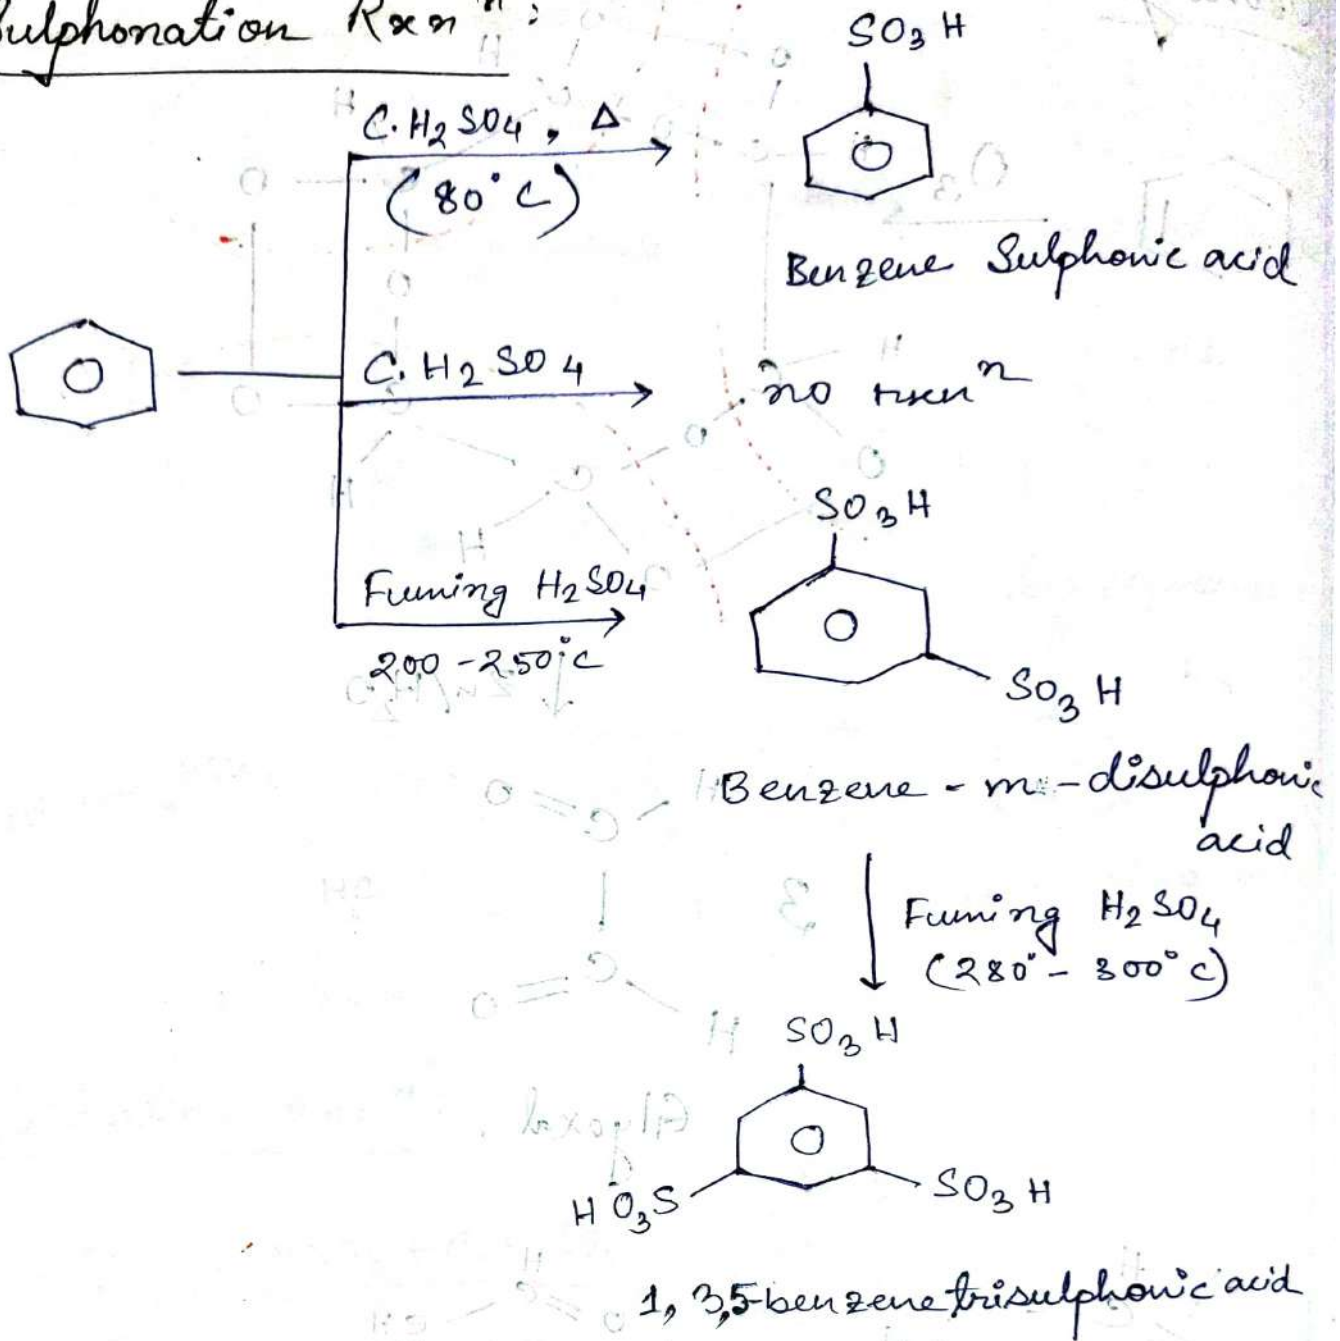 Sulphonation Rxnⁿ :
SO₃H
C. H₂SO₄, Δ
(80°C)
Benzene Sulphonic acid
C. H₂SO₄
no rxnⁿ
SO₃H
Fuming H₂SO₄
200-250°C
SO₃H
Benzene - m - disulphonic
acid
Fuming H₂SO₄
(280° - 300°C)
SO₃H
HO₃S
SO₃H
1, 3,5-benzene trisulphonic acid